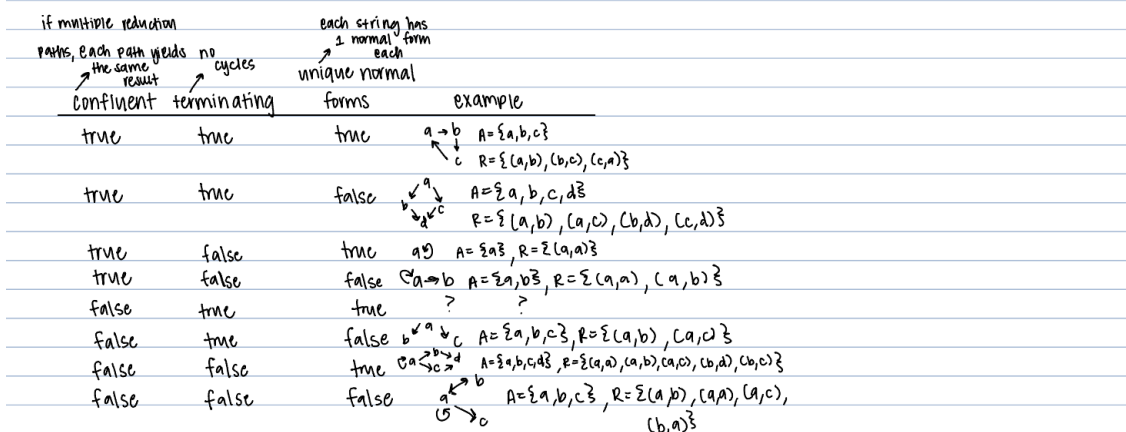 if multiple reduction
paths, each path yields
the same
result
no
cycles
each string has
1 normal form
each
unique normal
confluent terminating forms example
true true true a → b A={a,b,c}
c R={(a,b),(b,c),(c,a)}
true true false a b c d A={a,b,c,d}
R={(a,b),(a,c),(b,d),(c,d)}
true false true a A={a}, R={(a,a)}
true false false a→b A={a,b}, R={(a,a), (a,b)}
false true true ? ?
false true false b a c A={a,b,c}, R={(a,b),(a,c)}
false false true a b d c A={a,b,c,d}, R={(a,a),(a,b),(a,c),(b,d),(b,c)}
false false false a b c A={a,b,c}, R={(a,b),(a,a),(a,c),
(b,a)}